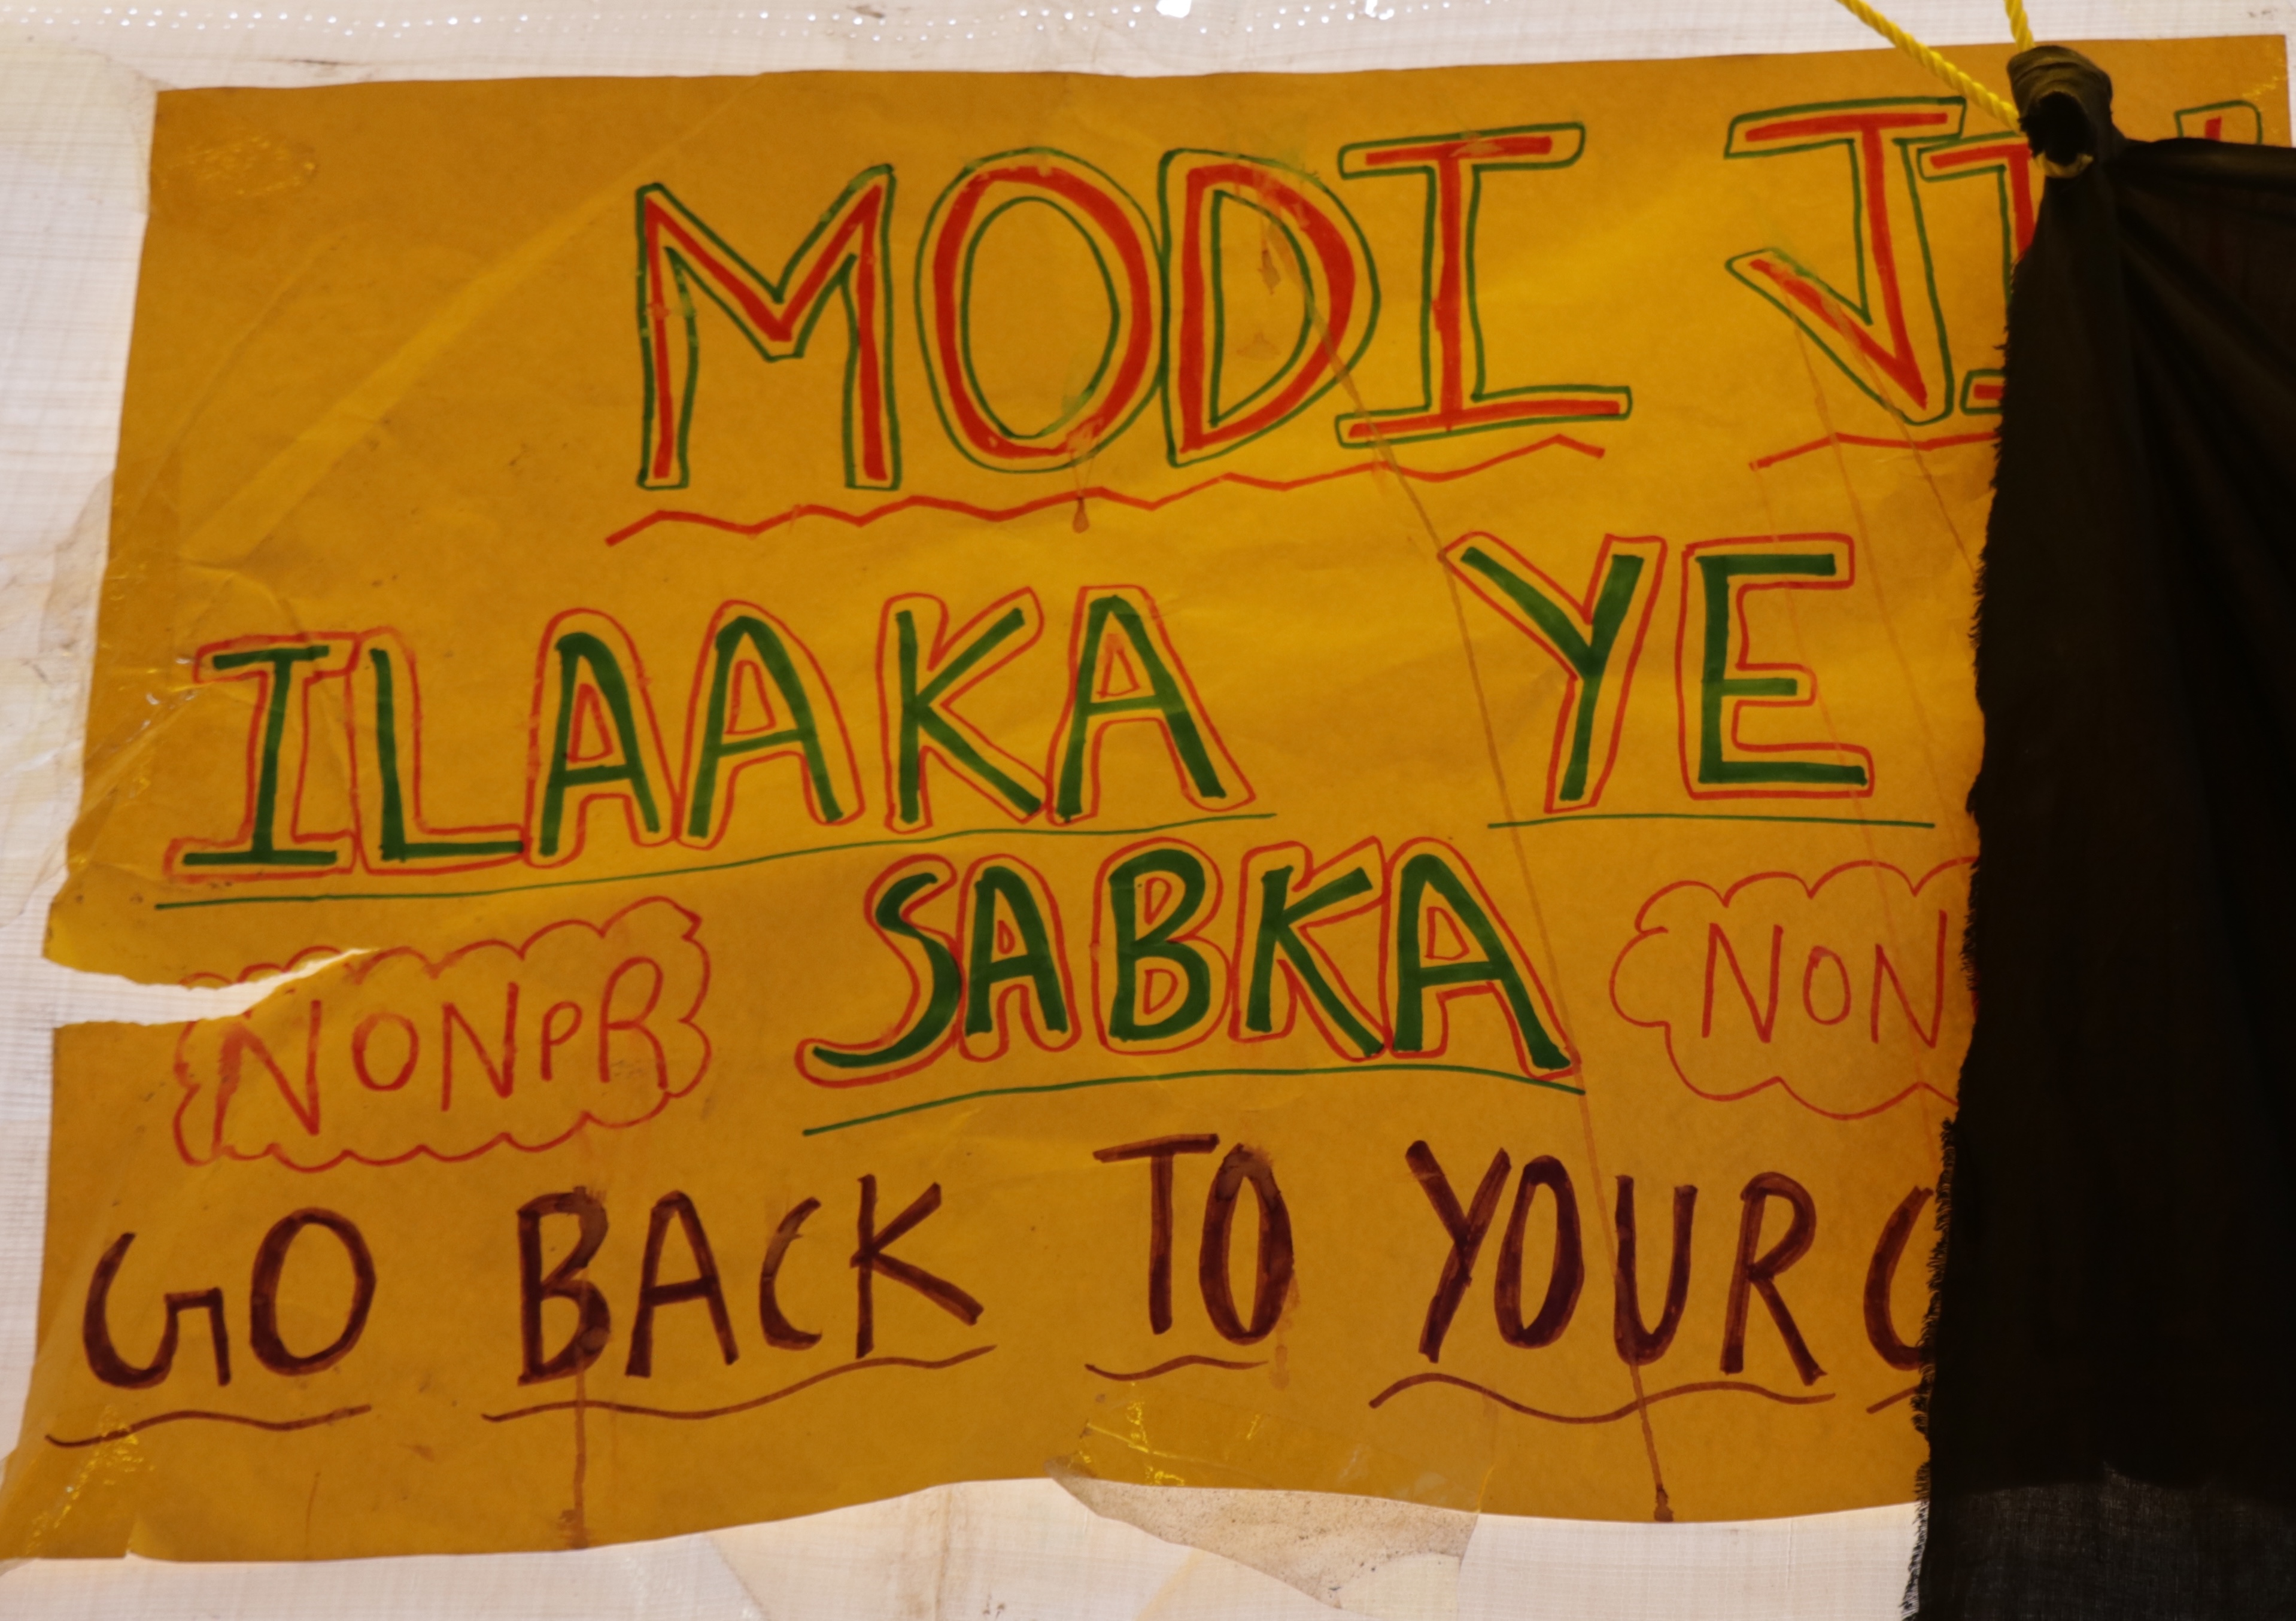 MODI JI
ILAAKA YE
NONPR SABKA NON
GO BACK TO YOUR